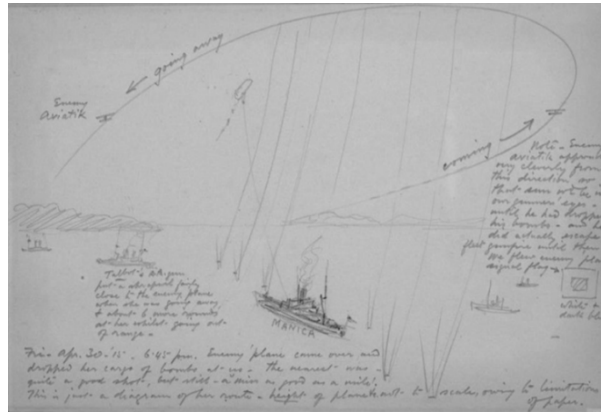 going away
Enemy
Aviatik
coming
Note - Enemy
aviatik
very cleverly from
this direction so
that
our gunners' eyes -
until he had dropped
his bombs - and he
did actually escape
fleet gunfire until
Talbot's
put a shrapnel fairly
close to the enemy plane
when she was going away
& about 6 more rounds
at her whilst going out
of range -
white &
dark blue
MANICA
Fri - Apr. 30 - 15 - 6.45 pm. Enemy 'plane came over and
dropped her cargo of bombs at us - the nearest was
quite a good shot, but still - 'a miss as good as a mile'.
This is just a diagram of her route - height of plane not to scale owing to limitations
of paper.